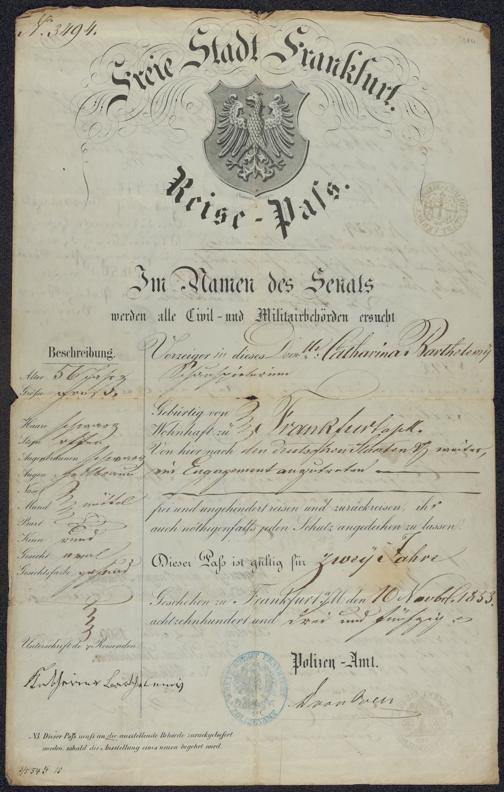 N. 3494.
Freie Stadt Frankfurt.
Reise-Paſs.
Im Namen des Senats
werden alle Civil- und Militairbehörden ersucht
Vorzeiger in dieses Catharina Barthelemy
Schauspielerin
Beschreibung.
Alter 56 Jahre
Größe
Haare schwarz
Stirn
Augenbraunen schwarz
Augen
Nase
Mund mittel
Bart
Kinn rund
Gesicht oval
Gesichtsfarbe gesund
Unterschrift de Reisenden
Gebürtig von
Wohnhaft zu Frankfurt
Von hier nach den deutschen Staaten weiter,
ein Engagement anzutreten
frei und ungehindert reisen und zurückreisen, ihr
auch nöthigenfalls jeden Schutz angedeihen zu lassen.
Dieser Paſs ist gültig für zwey Jahre
Geschehen zu Frankfurt a/M. den 10 Novbr. 1853.
achtzehnhundert und drei und fünfzig
Polizei-Amt.
NB. Dieser Paſs muſs an die ausstellende Behörde zurückgeliefert
werden, sobald die Ausstellung eines neuen begehrt wird.